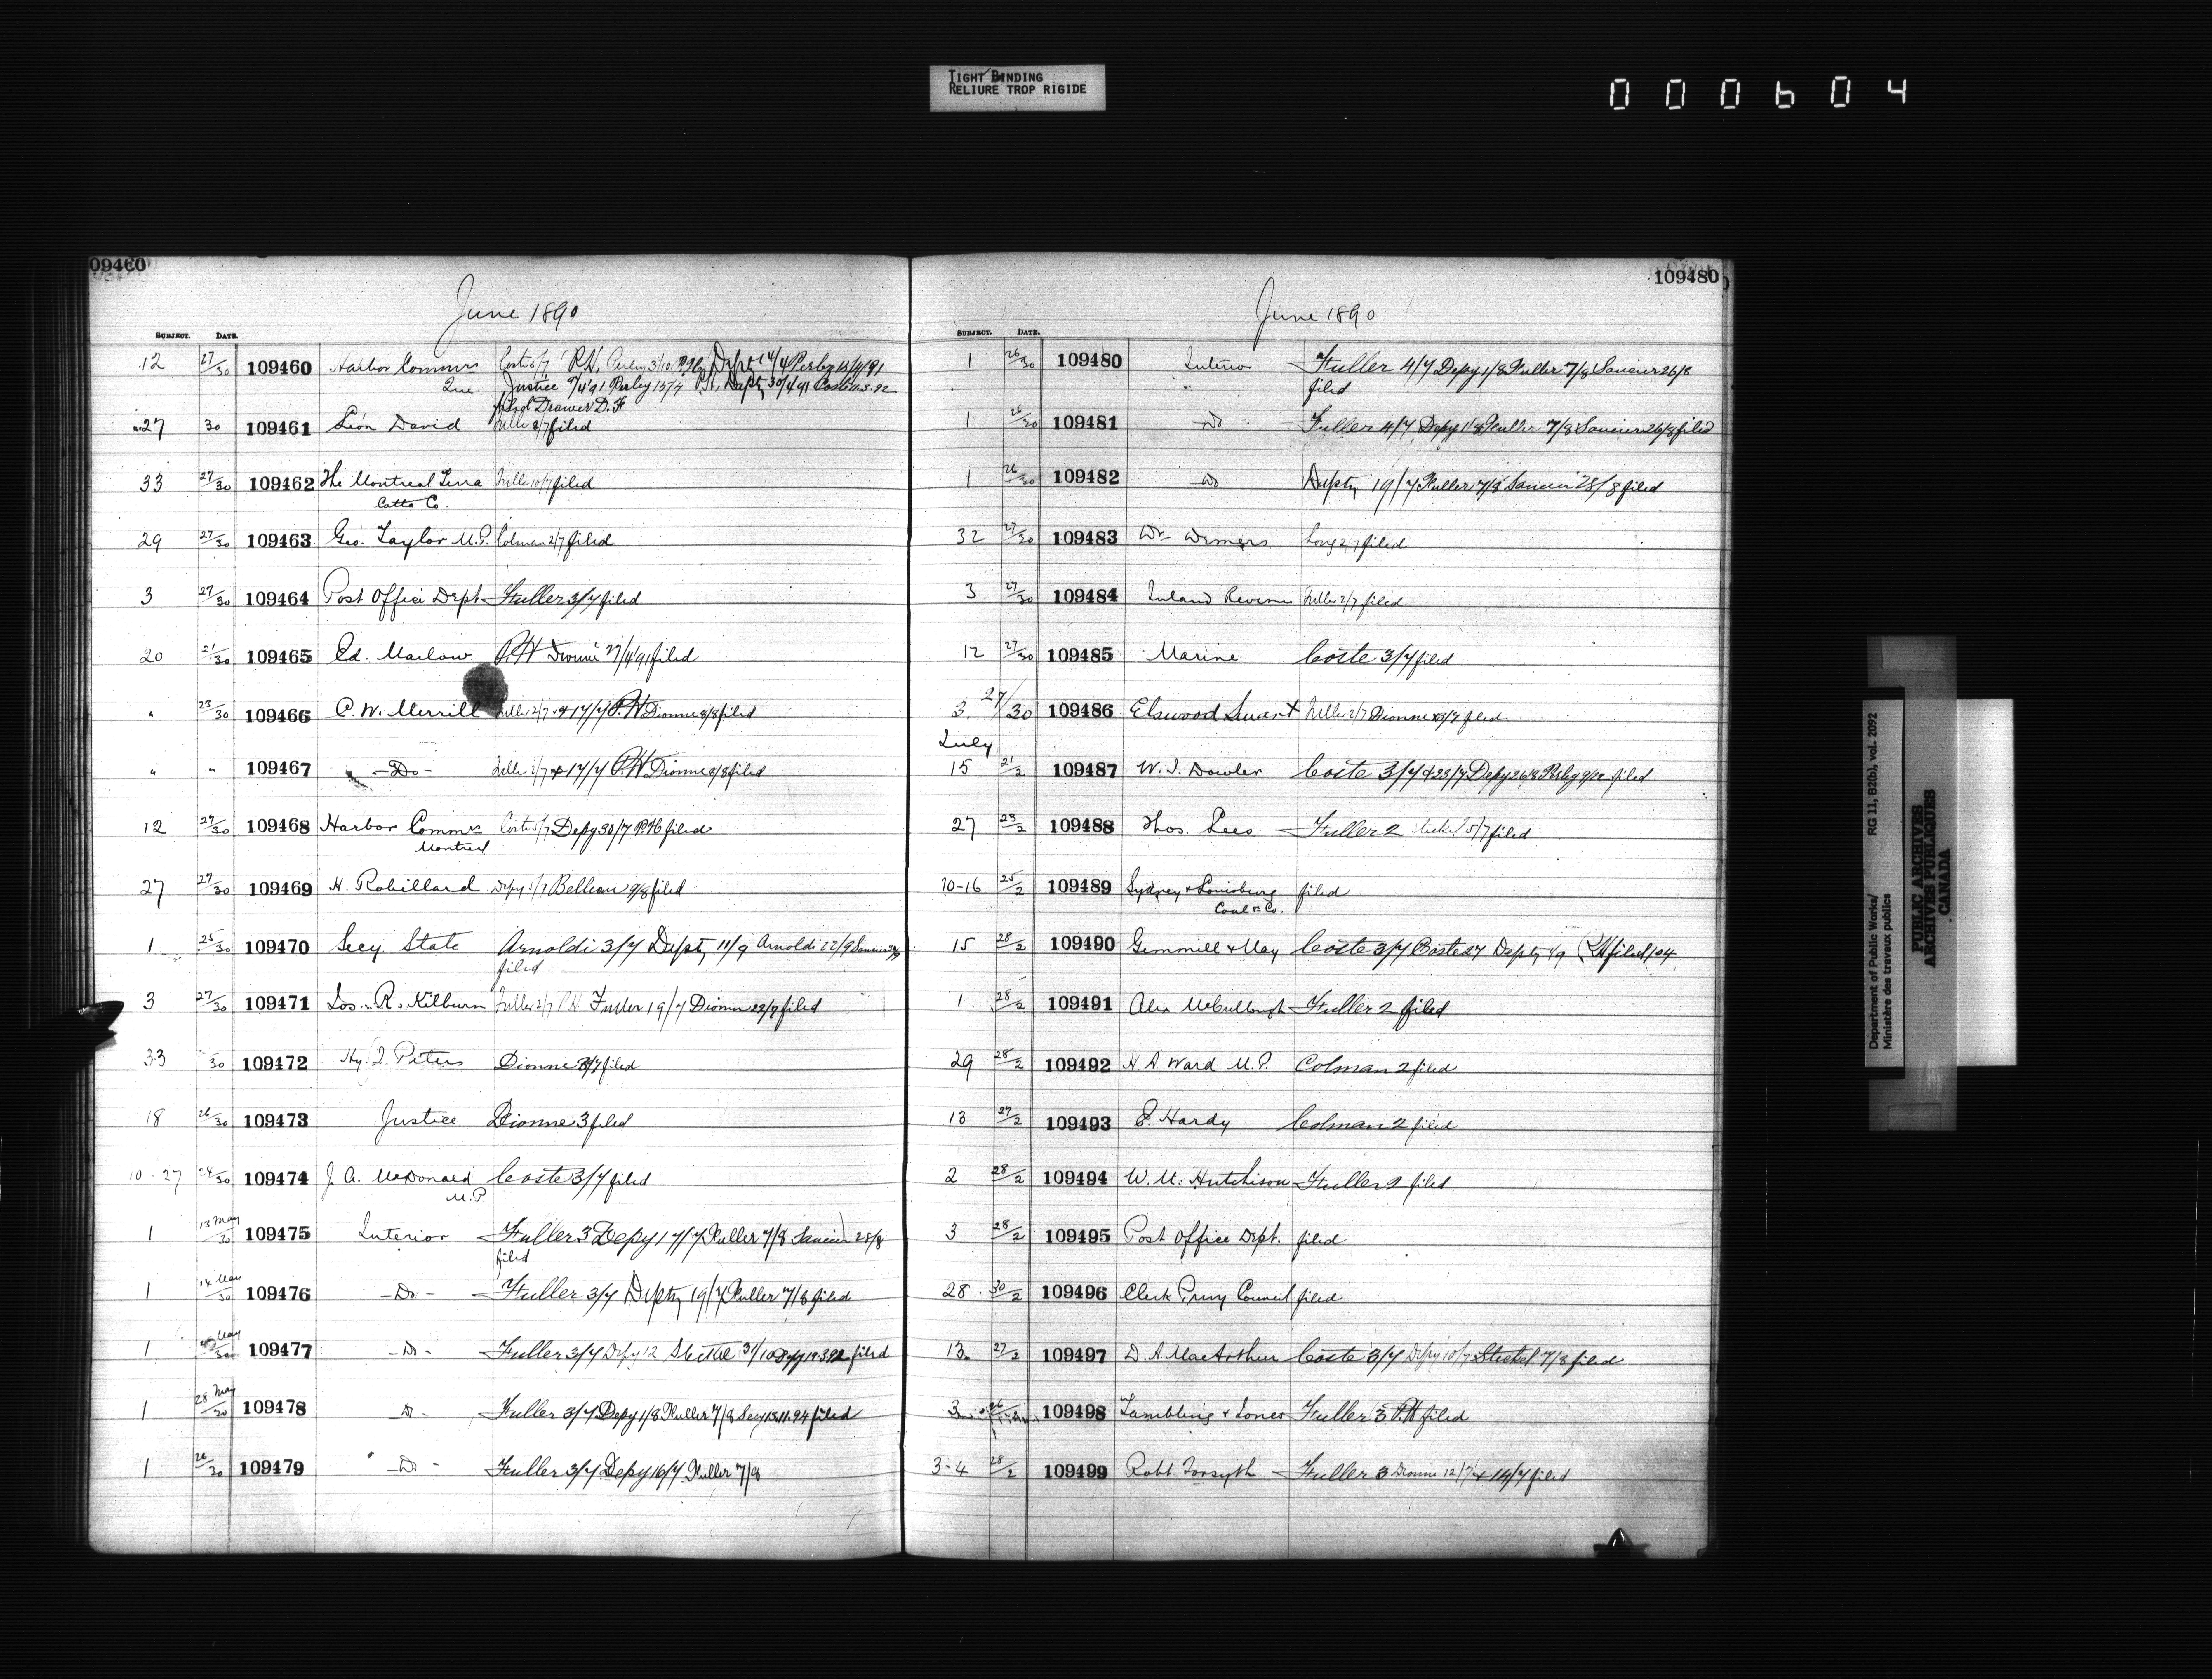 TIGHT BINDING
RELIURE TROP RIGIDE
000604
09460
June 1890
SUBJECT. DATE.
12 27/30 109460 Harbor Commrs Coste 5/7 P.H. Perley 3/10 Depty 14/4 Perley 15/4/91
Que. Justice 9/4/91 Perley 15/4 P.H. Depty 30/4/91 Coste 11.3.92
filed Drawer D.F
27 30 109461 Léon David Fuller 2/7 filed
33 27/30 109462 The Montreal Terra Fuller 10/7 filed
Cotta Co.
29 27/30 109463 Geo. Taylor M.P. Colman 2/7 filed
3 27/30 109464 Post Office Dept Fuller 3/7 filed
20 21/30 109465 Ed. Marlow P.H Dionne 27/4/91 filed
" 23/30 109466 C. W. Merrill Fuller 2/7 & 17/7 P.H Dionne 8/8 filed
" " 109467 -Do- Fuller 2/7 & 17/7 P.H Dionne 8/8 filed
12 27/30 109468 Harbor Commrs Coste 5/7 Depy 30/7 filed
Montreal
27 27/30 109469 H. Robillard Depy 5/7 Belleau 9/8 filed
1 25/30 109470 Secy. State Arnoldi 3/7 Depty 11/9 Arnoldi 22/9 Saucier
filed
3 27/30 109471 Jos. R. Kilburn Fuller 2/7 P.H Fuller 19/7 Dionne 23/7 filed
33 30 109472 Hy. J. Peters Dionne 8/7 filed
18 26/30 109473 Justice Dionne 3 filed
10-27 24/30 109474 J. A. McDonald Coste 3/7 filed
M.P.
1 13 May/30 109475 Interior Fuller 3 Depy 17/7 Fuller 7/8 Saucier 28/8
filed
1 14 May/30 109476 -Do- Fuller 3/7 Depty 19/7 Fuller 7/8 filed
1 May/30 109477 -Do- Fuller 3/7 Depy 12 Steckel 31/10 Depy 19.3.92 filed
1 28 May/30 109478 -Do- Fuller 3/7 Depy 1/8 Fuller 7/8 Secy 13.11.94 filed
1 26/30 109479 -Do- Fuller 3/7 Depy 16/7 Fuller 7/8
109480
June 1890
SUBJECT. DATE.
1 26/30 109480 Interior Fuller 4/7 Depy 1/8 Fuller 7/8 Saucier 26/8
filed
1 26/30 109481 -Do- Fuller 4/7 Depy 1/8 Fuller 7/8 Saucier 26/8 filed
1 26/30 109482 Do Depty 19/7 Fuller 7/8 Saucier 28/8 filed
32 27/30 109483 Dr Demers Long 2/7 filed
3 27/30 109484 Inland Revenue Fuller 2/7 filed
12 27/30 109485 Marine Coste 3/7 filed
3 27/30 109486 Elswood Smart Fuller 2/7 Dionne 8/7 filed
July
15 21/2 109487 W. J. Dowler Coste 3/7 & 23/7 Depy 26/8 Perley 9/12 filed
27 23/2 109488 Thos. Lees Fuller 2 Steckel 5/7 filed
10-16 25/2 109489 Sydney & Louisburg filed
Coal &c Co.
15 28/2 109490 Gemmill & May Coste 3/7 Coste 27 Depty 4/9 P.H filed 104
1 28/2 109491 Alex McCullough Fuller 2 filed
29 28/2 109492 H. A. Ward M.P. Colman 2 filed
13 27/2 109493 E. Hardy Colman 2 filed
2 28/2 109494 W. M. Hutchison Fuller 2 filed
3 28/2 109495 Post Office Dept. filed
28 30/2 109496 Clerk Privy Council filed
13 27/2 109497 D. A. MacArthur Coste 3/7 Depy 10/7 Steckel 7/8 filed
3 109498 Tambling & Jones Fuller 3 P.H filed
3-4 28/2 109499 Robt. Forsyth Fuller 3 Dionne 12/7 & 14/7 filed
Department of Public Works/ RG 11, B2(b), vol. 2092
Ministère des travaux publics
PUBLIC ARCHIVES
ARCHIVES PUBLIQUES
CANADA